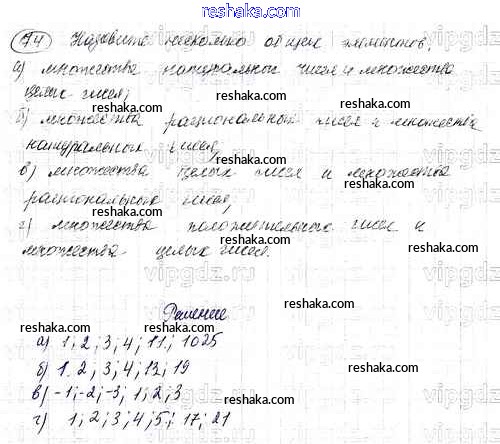 reshaka.com
74 Назовите несколько общих элементов:
а) множества натуральных чисел и множества
целых чисел;
reshaka.com
б) множества рациональных чисел и множества
reshaka.com
натуральных чисел;
reshaka.com
в) множества целых чисел и множества
reshaka.com
рациональных чисел;
reshaka.com
г) множества положительных чисел и
reshaka.com
множества целых чисел.
Решение
reshaka.com reshaka.com
а) 1; 2; 3; 4; 11; 1025
reshaka.com
б) 1. 2; 3; 4; 13; 19
reshaka.com
в) -1; -2; -3; 1; 2; 3
reshaka.com
г) 1; 2; 3; 4; 5; 17; 21
reshaka.com